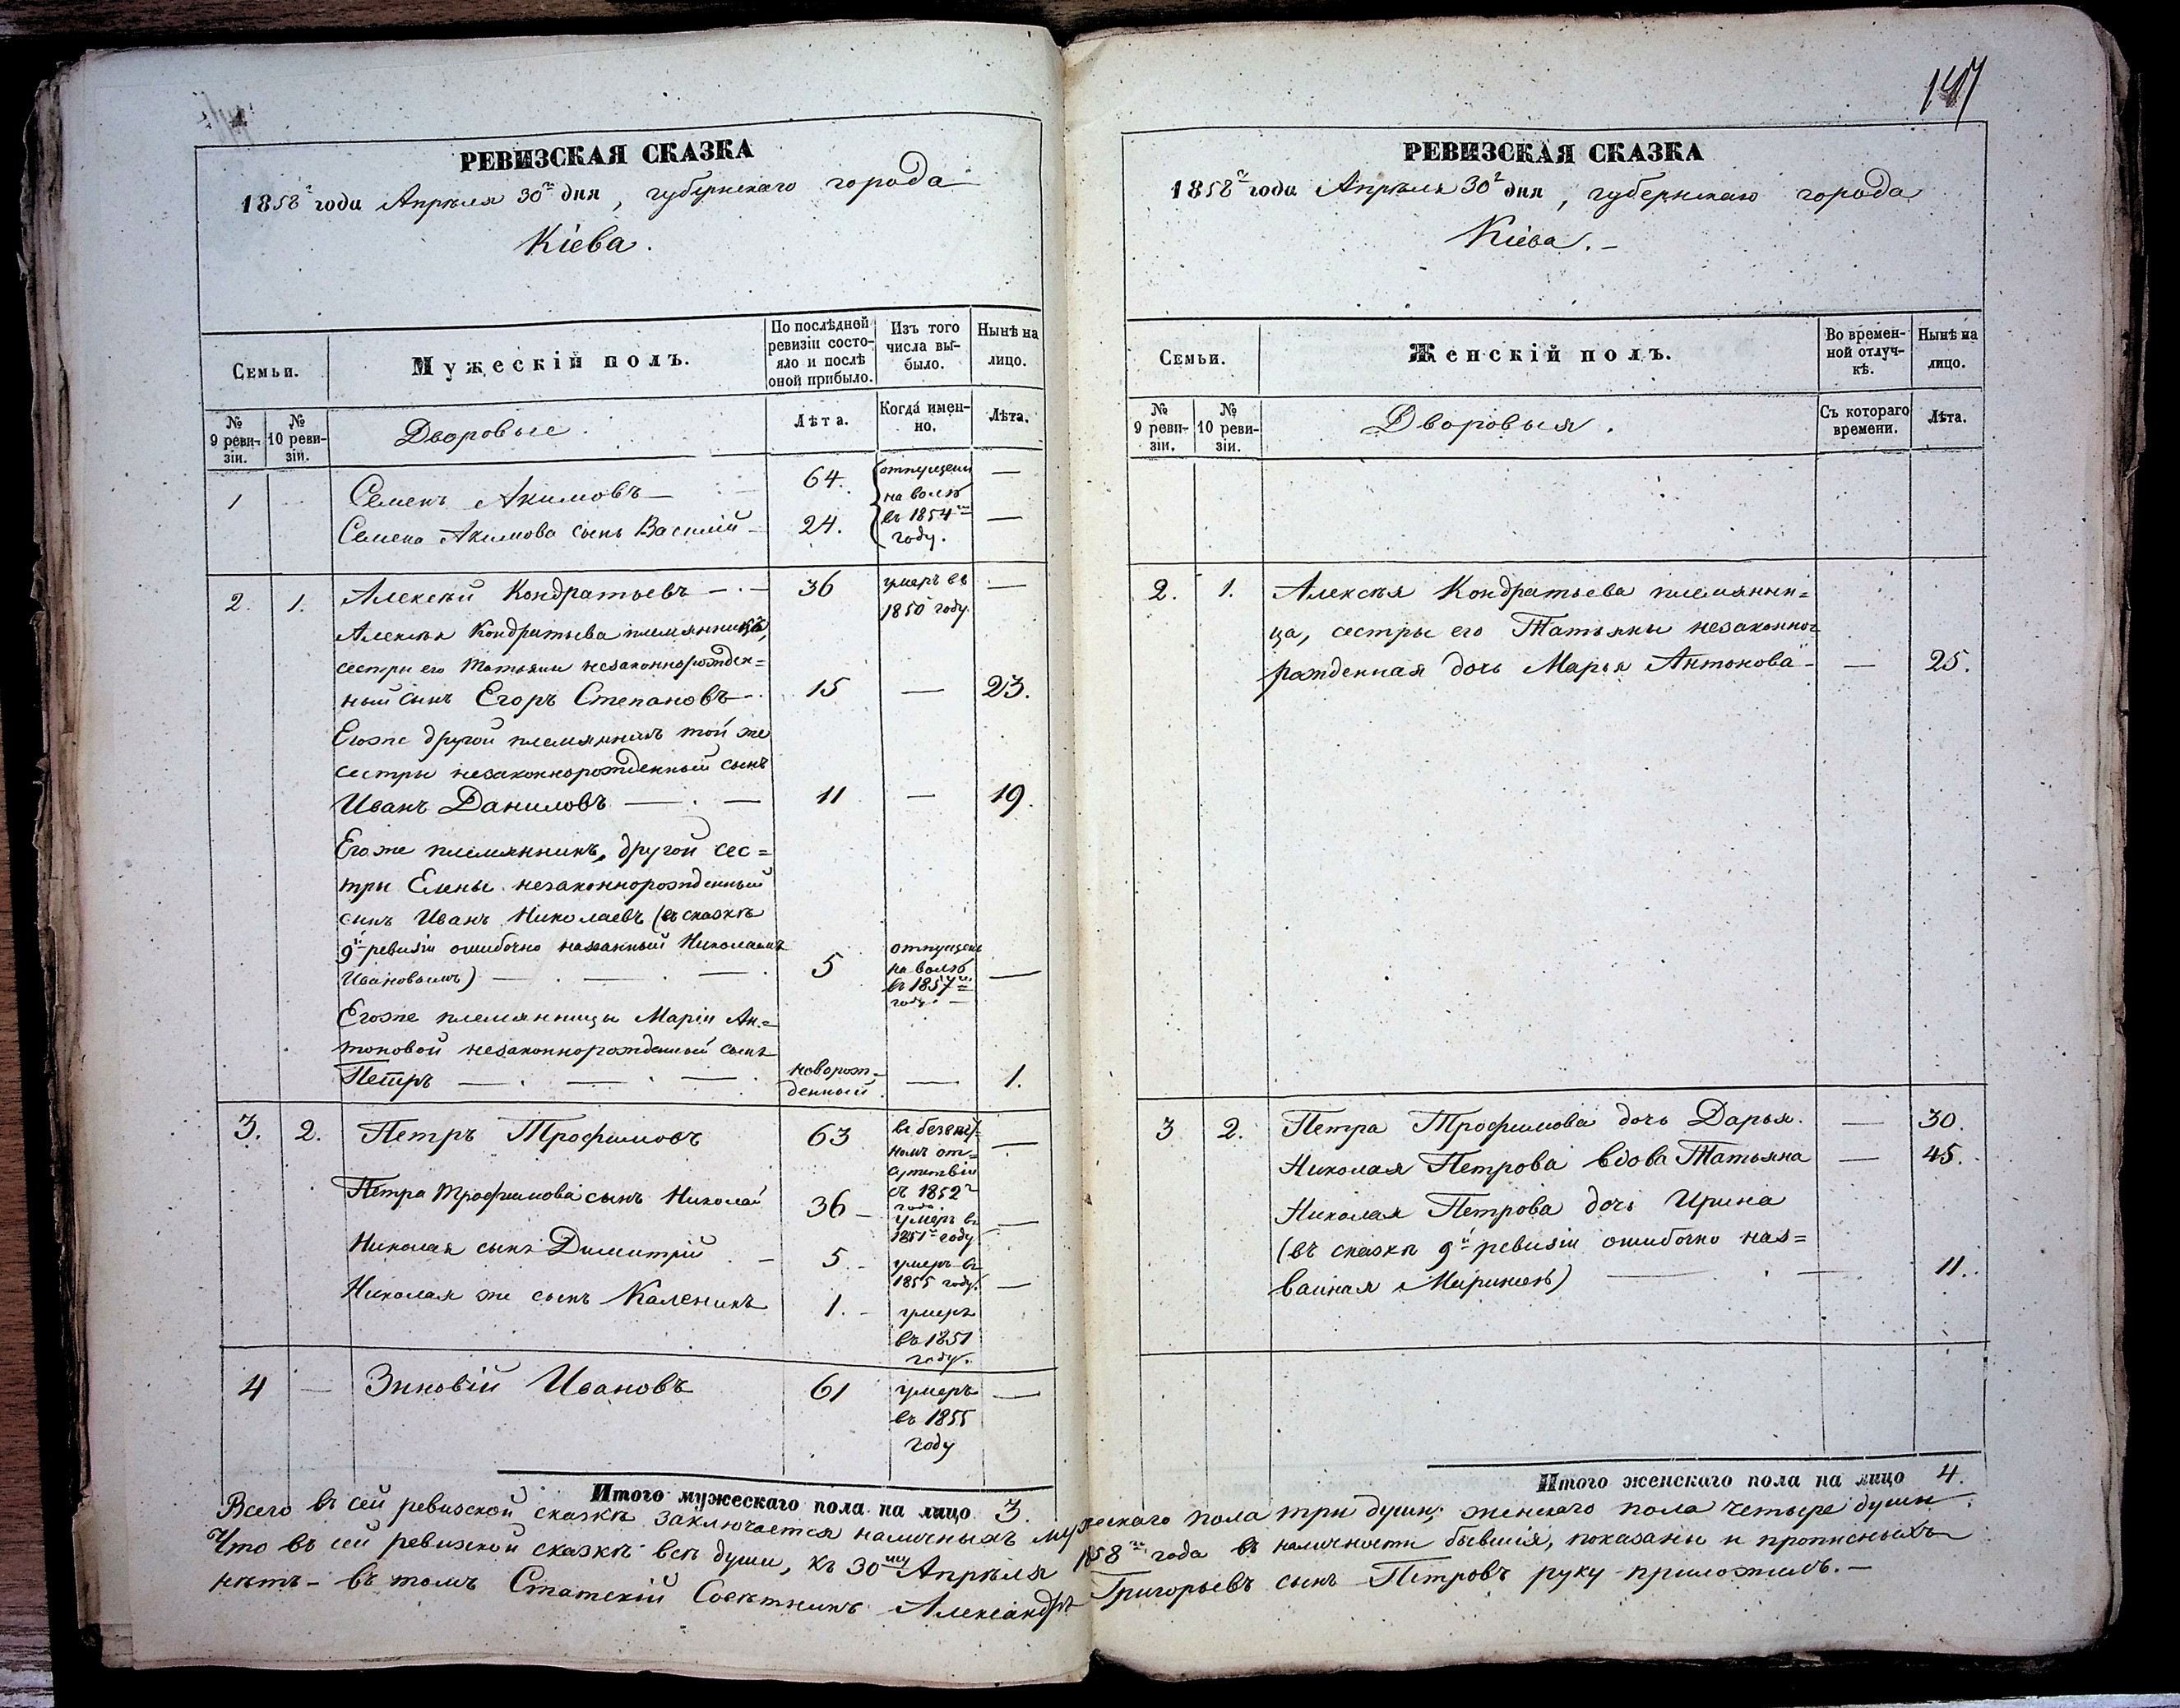 РЕВИЗСКАЯ СКАЗКА
1858 года Апрѣля 30го дня, губернскаго города
Кіева.
Семьи.
Мужескій полъ.
По послѣдней ревизіи состояло и послѣ оной прибыло.
Изъ того числа выбыло.
Нынѣ на лицо.
№ 9 ревизіи.
№ 10 ревизіи.
Дворовые.
Лѣта.
Когда именно.
Лѣта.
1 — Семенъ Акимовъ — 64. отпущены —
на волю
Семена Акимова сынъ Василій — 24. въ 1854мъ —
году.
2. 1. Алексѣй Кондратьевъ — 36 умеръ въ —
1850 году.
Алексѣя Кондратьева племянникъ,
сестры его Татьяны незаконнорожден=
ный сынъ Егоръ Степановъ — 15 — 23.
Его же другой племянникъ той же
сестры незаконнорожденный сынъ
Иванъ Даниловъ — . — 11 — 19.
Его же племянникъ, другой сес=
тры Елены незаконнорожденный
сынъ Иванъ Николаевъ (въ сказкѣ
9й ревизіи ошибочно названный Николаемъ отпущенъ
Ивановымъ) — . — . — . 5 на волю —
въ 1857мъ
году. —
Его же племянницы Маріи Ан=
тоновой незаконнорожденный сынъ
Петръ — . — . — . новорож=
денный — 1.
3. 2. Петръ Трофимовъ 63 въ безвѣст= —
номъ от=
сутствіи
съ 1852г
года.
Петра Трофимова сынъ Николай 36 — умеръ въ —
1851м году
Николая сынъ Димитрій — 5. — умеръ въ
1855 году. —
Николая же сынъ Каленикъ 1. — умеръ
въ 1851
году.
4 — Зиновій Ивановъ 61 умеръ —
въ 1855
году
Итого мужескаго пола на лицо 3.
147
РЕВИЗСКАЯ СКАЗКА
1858го года Апрѣля 30г дня, губернскаго города
Кіева. —
Семьи.
Женскій полъ.
Во временной отлучкѣ.
Нынѣ на лицо.
№ 9 ревизіи.
№ 10 ревизіи.
Дворовыя.
Съ котораго времени.
Лѣта.
2. 1. Алексѣя Кондратьева племянни=
ца, сестры его Татьяны незаконно=
рожденная дочь Марья Антонова — — 25.
3 2. Петра Трофимова дочь Дарья. — 30.
Николая Петрова вдова Татьяна — 45.
Николая Петрова дочь Ирина
(въ сказкѣ 9й ревизіи ошибочно наз=
ванная Мариною) — . — 11.
Итого женскаго пола на лицо 4.
Всего въ сей ревизской сказкѣ заключается наличныхъ мужескаго пола три души, женскаго пола четыре души.
Что въ сей ревизской сказкѣ всѣ души, къ 30му Апрѣля 1858го года въ наличности бывшія, показаны и прописныхъ
нѣтъ — въ томъ Статскій Совѣтникъ Александръ Григорьевъ сынъ Петровъ руку приложилъ. —